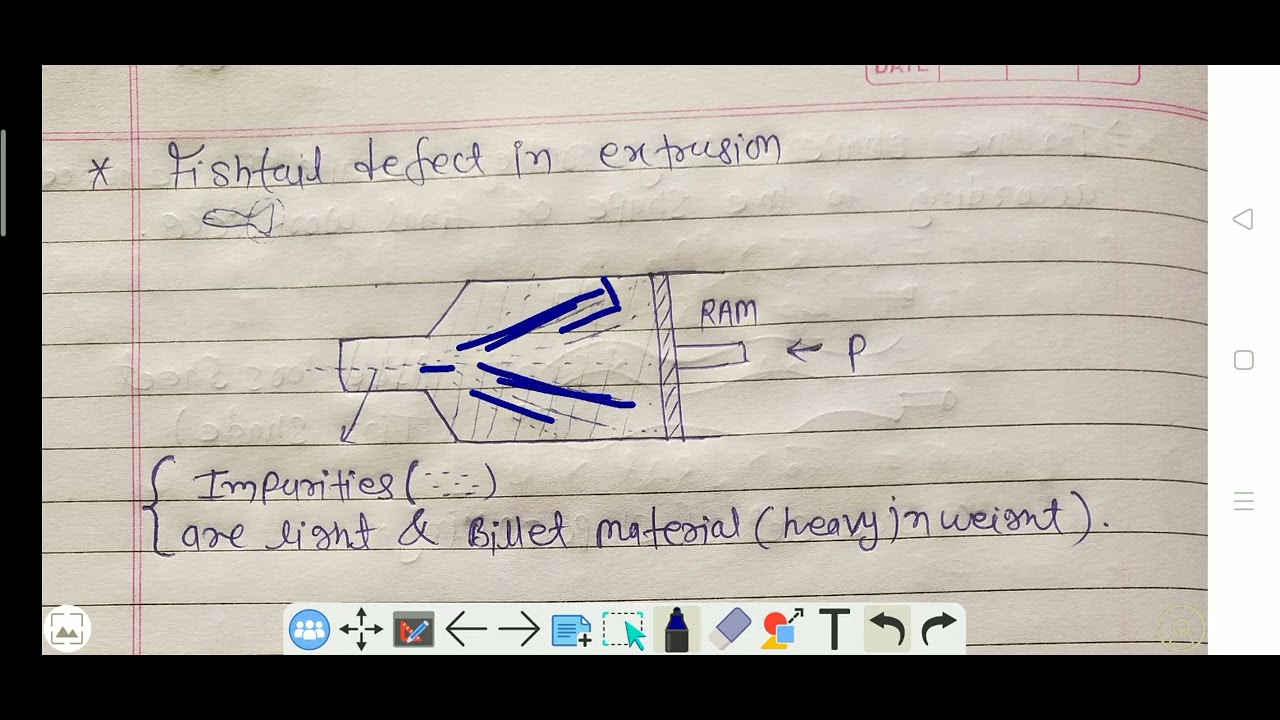 DATE
* Fishtail defect in extrusion
RAM
← P
Impurities (----)
are light & Billet material (heavy in weight).
T